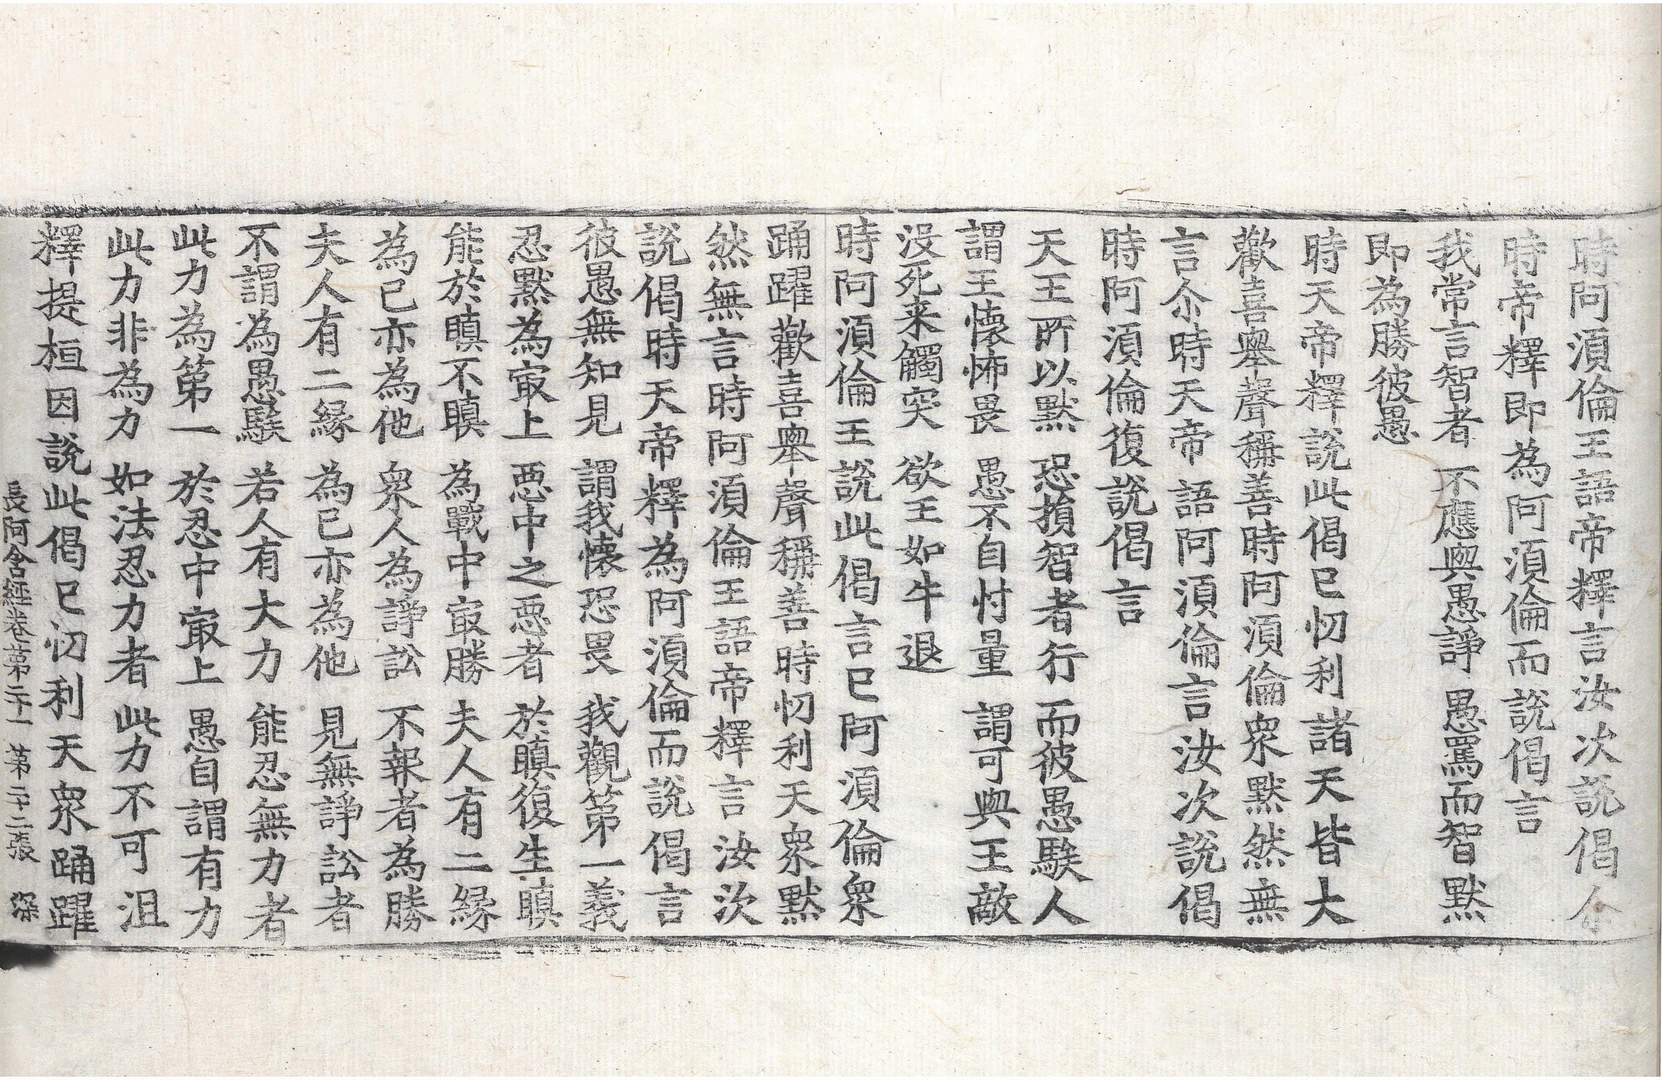 時阿湏倫王語帝釋言汝次說偈尒
時帝釋即為阿湏倫而說偈言
我常言智者　不應與愚諍　愚罵而智默
即為勝彼愚
時天帝釋說此偈已忉利諸天皆大
歡喜舉聲稱善時阿湏倫衆默然無
言尒時天帝語阿湏倫言汝次說偈
時阿湏倫復說偈言
天王所以默　恐損智者行　而彼愚騃人
謂王懷怖畏　愚不自忖量　謂可與王敵
没死来觸突　欲王如牛退
時阿湏倫王說此偈言已阿湏倫衆
踊躍歡喜舉聲稱善時忉利天衆默
然無言時阿湏倫王語帝釋言汝次
說偈時天帝釋為阿湏倫而說偈言
彼愚無知見　謂我懷恐畏　我觀第一義
忍默為㝡上　惡中之惡者　於瞋復生瞋
能於瞋不瞋　為戰中㝡勝　夫人有二緣
為己亦為他　衆人為諍訟　不報者為勝
夫人有二緣　為己亦為他　見無諍訟者
不謂為愚騃　若人有大力　能忍無力者
此力為第一　於忍中㝡上　愚自謂有力
此力非為力　如法忍力者　此力不可沮
釋提桓因說此偈已忉利天衆踊躍
長阿含經卷第二十一　第二十二張　深